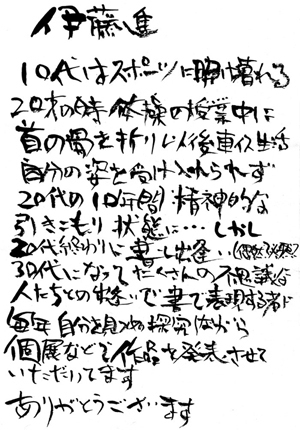 伊藤進
10代はスポーツに明け暮れる
20才の時体操の授業中に
首の骨を折り以後車イス生活
自分の姿を受け入れられず
20代の10年間精神的な
引きこもり状態に…しかし
20代終わりに書と出逢い
30代になってたくさんの不思議な
人たちとの出逢いで書で表現する者に
毎年自分を見つめ探究しながら
個展などで作品を発表させて
いただいてます
ありがとうございます